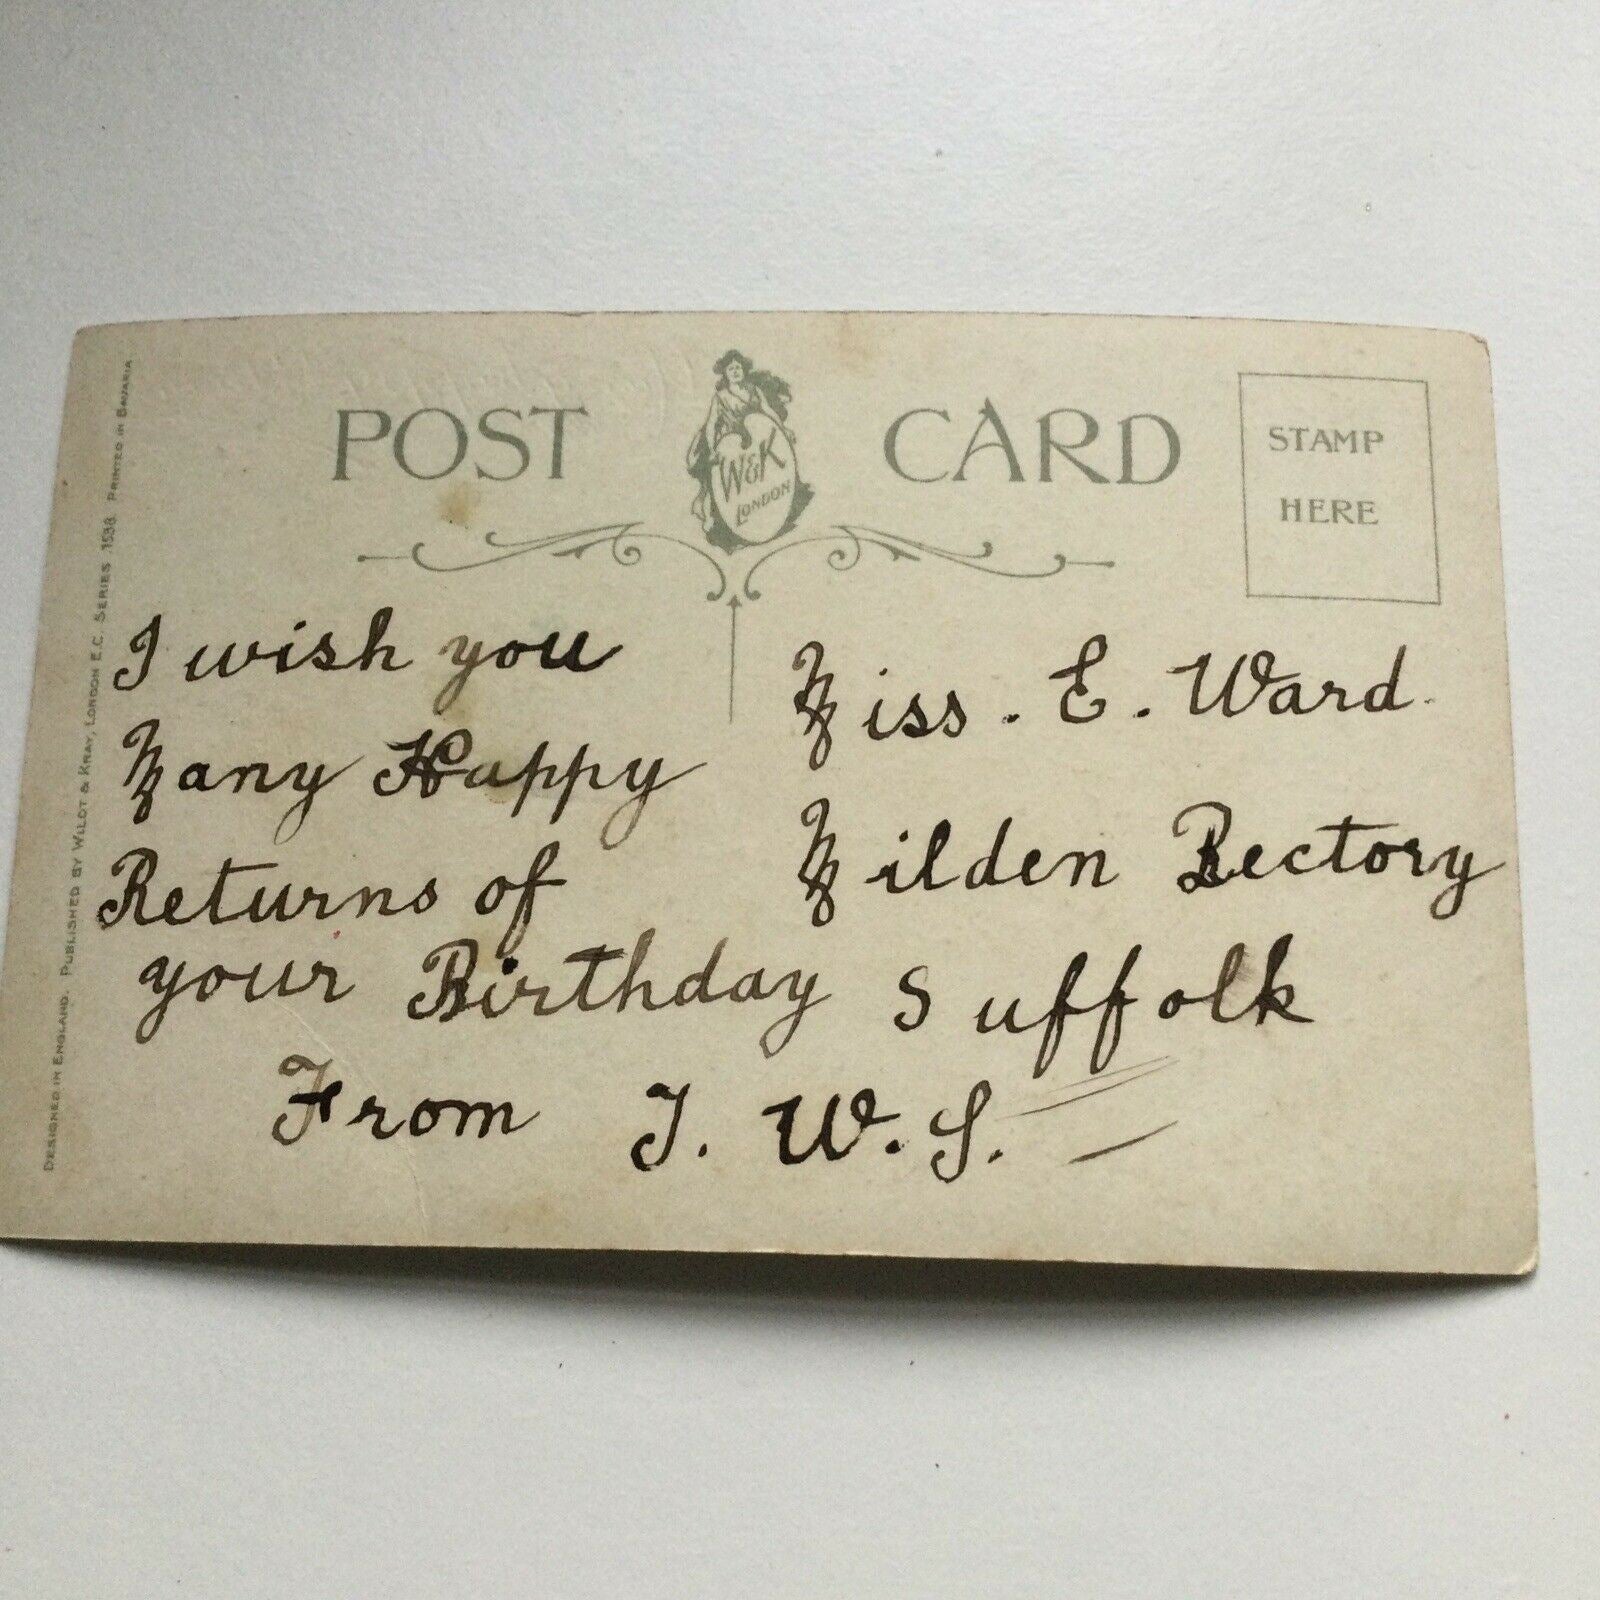 POST CARD
W&K
LONDON
STAMP
HERE
I wish you
Many Happy
Returns of
your Birthday
From J. W. S.
Miss. E. Ward.
Milden Rectory
Suffolk
DESIGNED IN ENGLAND. PUBLISHED BY WILDT & KRAY, LONDON E.C. SERIES 1538 PRINTED IN BAVARIA